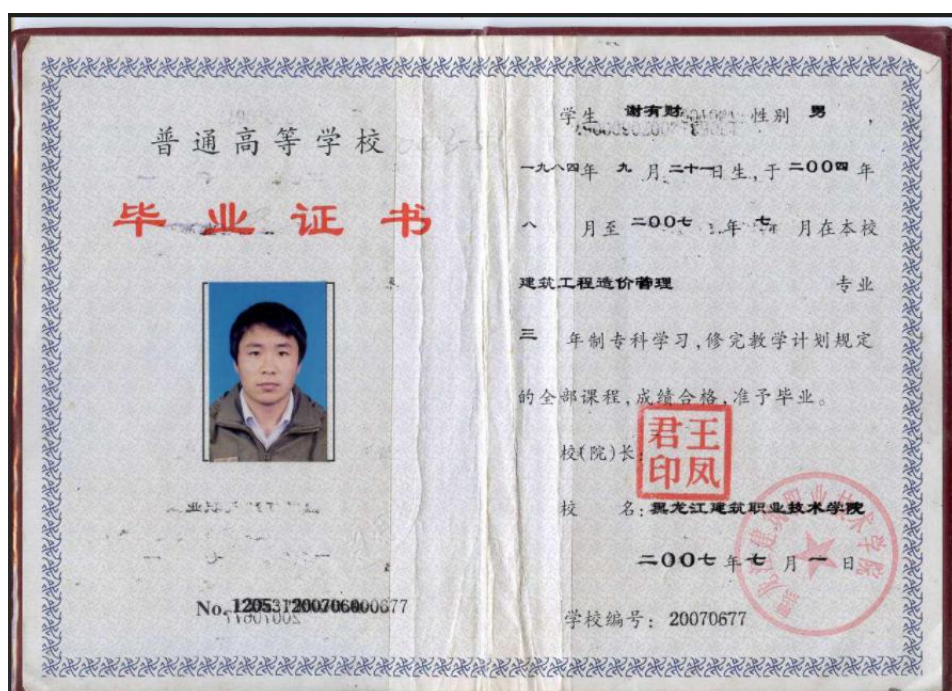 普通高等学校
毕业证书
学生 谢有财 性别 男 ,
一九八四年 九 月 二十一日生,于 二00四 年
八 月至 二00七 年 七 月在本校
建筑工程造价管理 专业
三 年制专科学习,修完教学计划规定
的全部课程,成绩合格,准予毕业。
校(院)长:
王凤
君印
校 名: 黑龙江建筑职业技术学院
二00七 年 七 月 一 日
学校编号: 20070677
No.